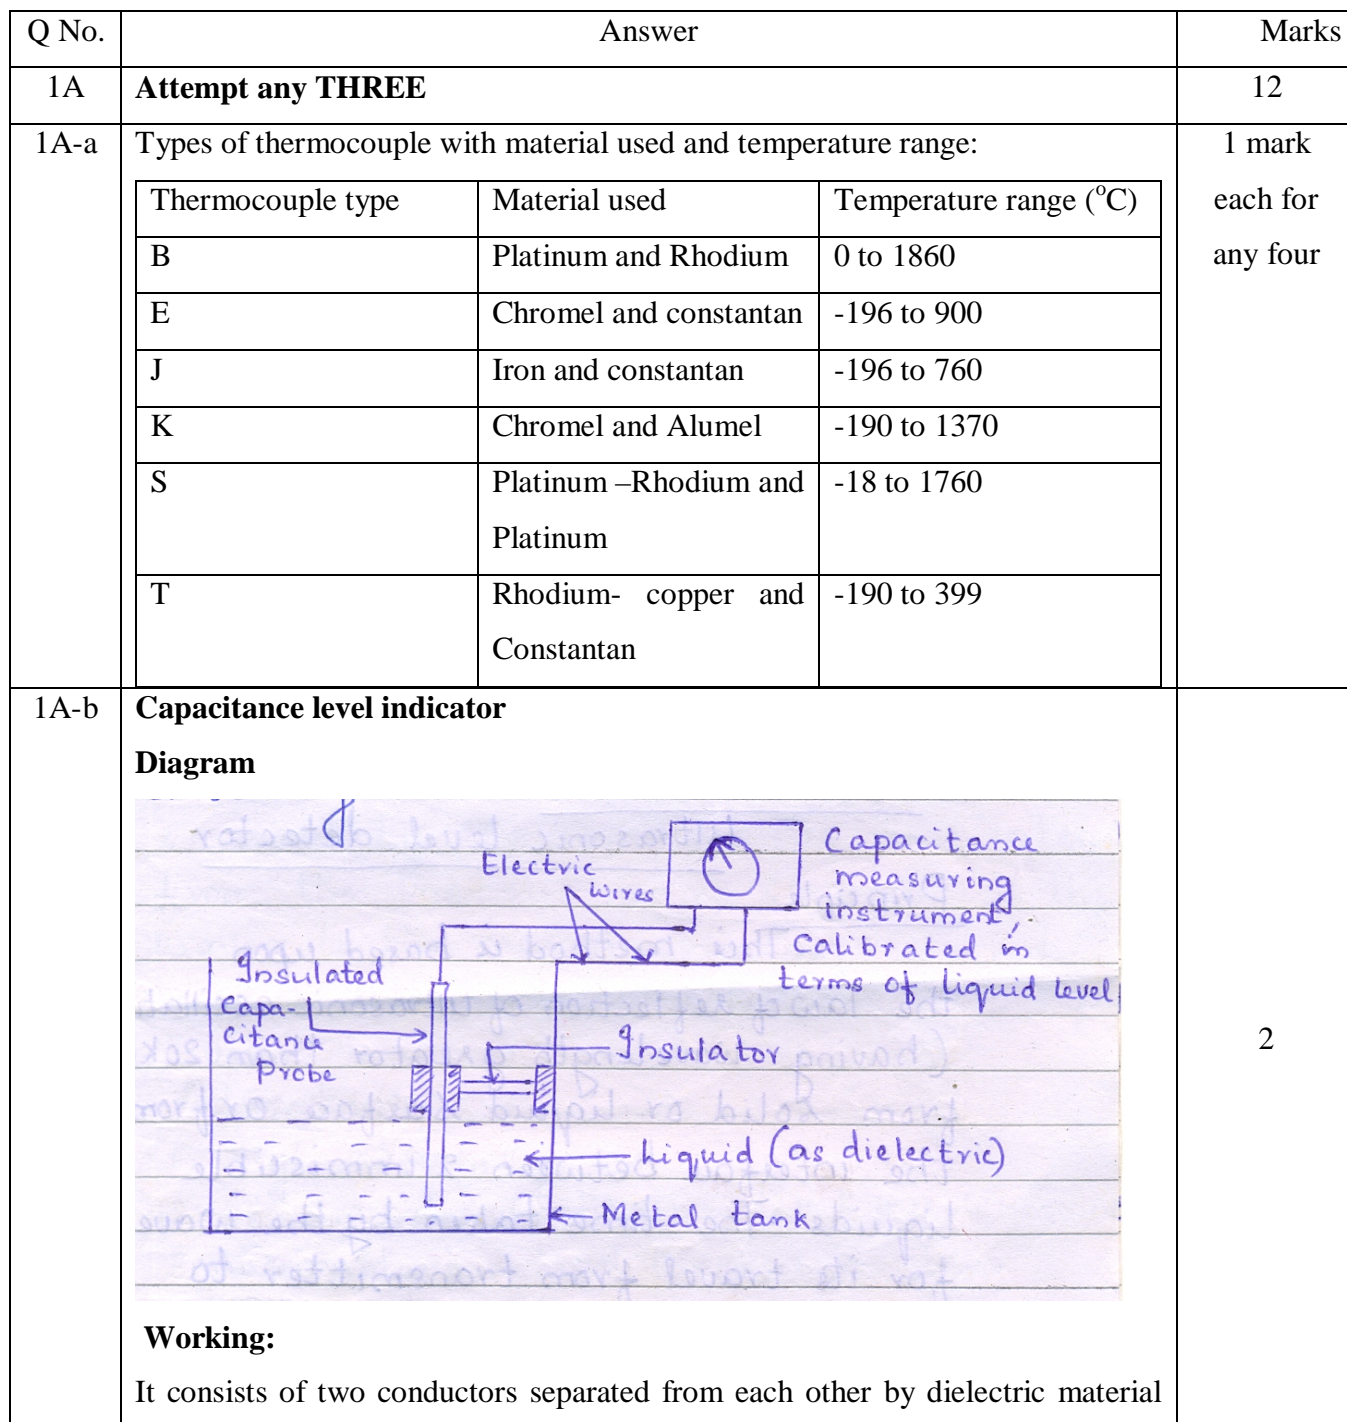 Q No. Answer Marks
1A Attempt any THREE 12
1A-a Types of thermocouple with material used and temperature range: 1 mark
Thermocouple type Material used Temperature range (°C) each for
B Platinum and Rhodium 0 to 1860 any four
E Chromel and constantan -196 to 900
J Iron and constantan -196 to 760
K Chromel and Alumel -190 to 1370
S Platinum –Rhodium and -18 to 1760
Platinum
T Rhodium- copper and -190 to 399
Constantan
1A-b Capacitance level indicator
Diagram
Capacitance
measuring
instrument,
Calibrated in
terms of liquid level
Electric
wires
Insulated
Capa-
citance
Probe
Insulator
Liquid (as dielectric)
Metal tank
2
Working:
It consists of two conductors separated from each other by dielectric material